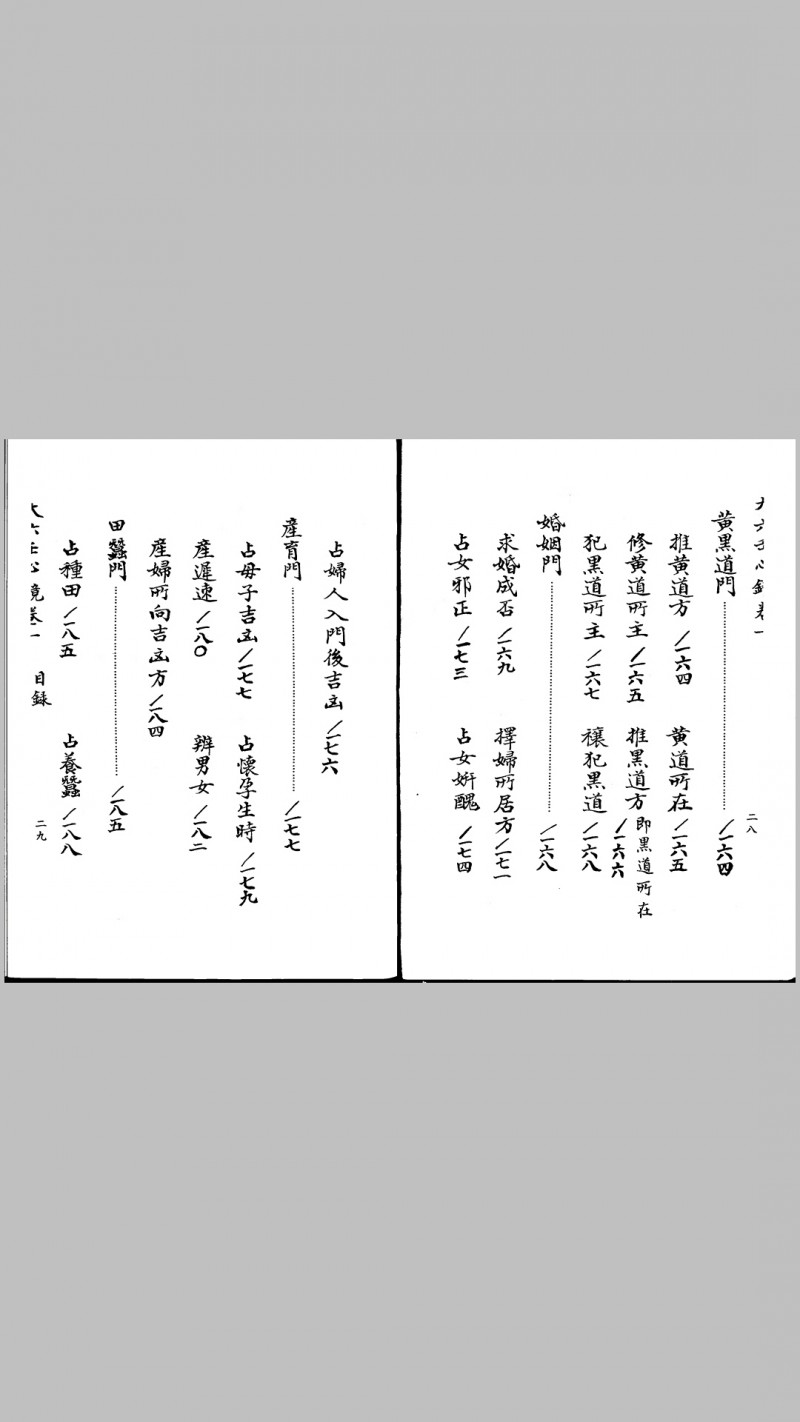 大六壬心鏡卷一
二八
黃黑道門……/一六四
推黃道方/一六四 黃道所在/一六五
修黃道所主/一六五 推黑道方即黑道所在/一六六
犯黑道所主/一六七 禳犯黑道/一六八
婚姻門……/一六八
求婚成否/一六九 擇婦所居方/一七一
占女邪正/一七三 占女妍醜/一七四
占婦人入門後吉凶/一七六
產育門……/一七七
占母子吉凶/一七七 占懷孕生時/一七九
產遲速/一八〇 辨男女/一八二
產婦所向吉凶方/一八四
田蠶門……/一八五
占種田/一八五 占養蠶/一八八
大六壬心鏡卷一 目錄 二九